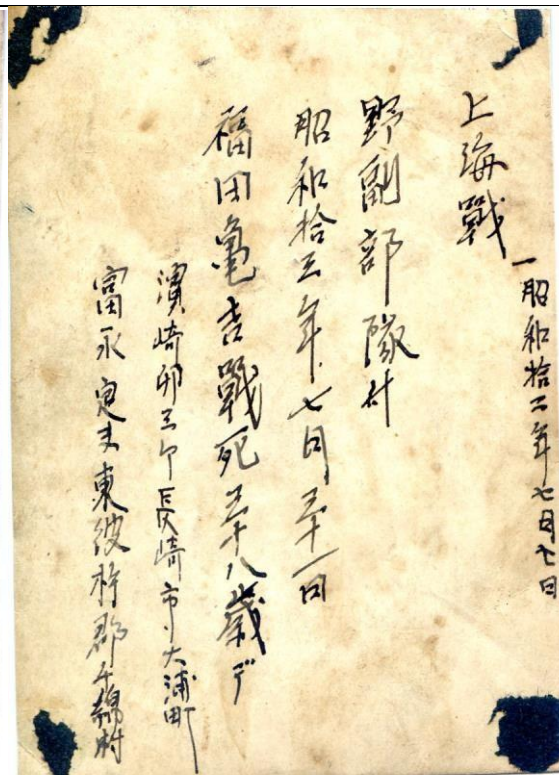 上海戰
一昭和拾二年七月七日
野副部隊村
昭和拾三年七月三十一日
福田亀吉戰死三十八歳デ
濱崎卯三郎長崎市大浦町
富永定夫東彼杵郡千綿村